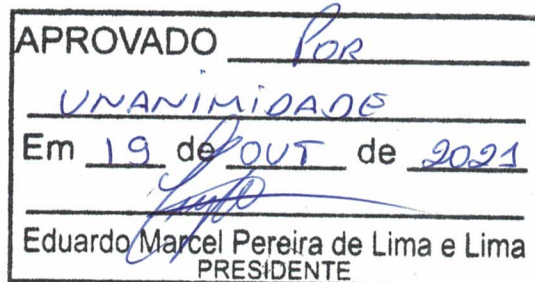 APROVADO POR
UNANIMIDADE
Em 19 de OUT de 2021
Eduardo Marcel Pereira de Lima e Lima
PRESIDENTE